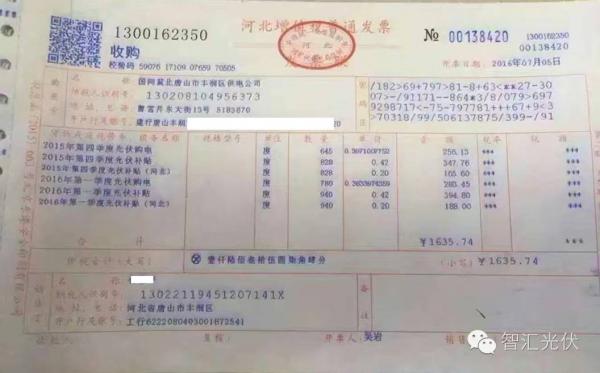 1300162350
河北增值税普通发票
№ 00138420
1300162350
00138420
收购
校验码 59076 17109 07659 70505
开票日期: 2016年07月05日
国网冀北唐山市丰润区供电公司
纳税人识别号: 130208104956373
地址、电话: 曹雪芹东大街13号 5183870
开户行及账号: 建行唐山丰润
/182>69+797>81-8+63<**27-30
07>-/91171--864*3/8/079>697
9298717<-75-797781++67+9<3
>70318/99/506137875/399-/91
规格型号 单位 数量 单价 金额 税率 税额
2015年第四季度光伏购电 度 645 256.13 ***
2015年第四季度光伏补贴 度 828 0.42 347.76 ***
2015年第四季度光伏补贴(河北) 度 828 0.20 165.60 ***
2016年第一季度光伏购电 度 780 283.45 ***
2016年第一季度光伏补贴 度 940 0.42 394.80 ***
2016年第一季度光伏补贴(河北) 度 940 0.20 188.00 ***
合计 ¥1635.74 ***
价税合计(大写) 壹仟陆佰叁拾伍圆柒角肆分 (小写) ¥1635.74
名称:
纳税人识别号: 13022119451207141X
地址、电话: 河北省唐山市丰润区
开户行及账号: 工行6222080403001672541
收款人: 复核: 开票人: 吴岩
智汇光伏